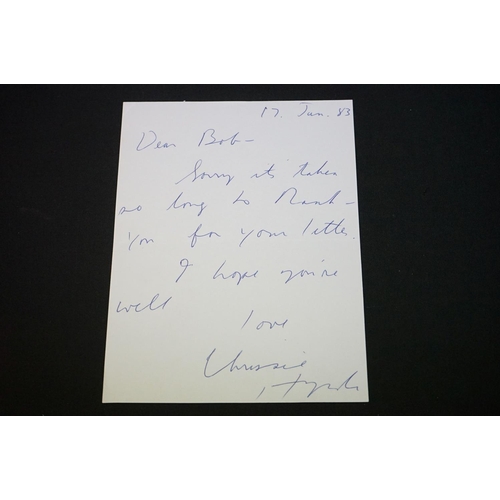 17. Jan. 83
Dear Bob-
Sorry it's taken
so long to thank-
you for your letter.
I hope you're
well
love
Chrissie
Hynde